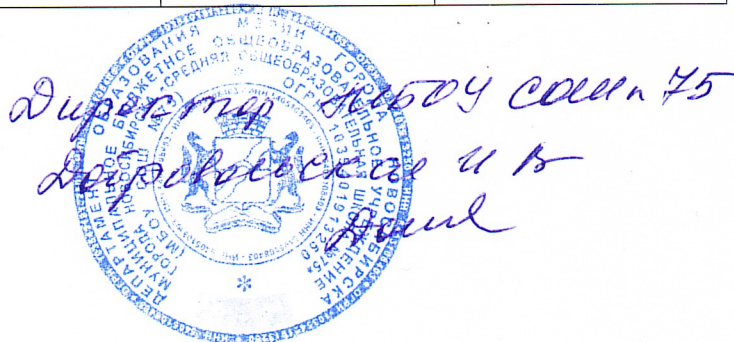 Директор МБОУ СОШ № 75
Добровольская И В
ДЕПАРТАМЕНТ ОБРАЗОВАНИЯ МЭРИИ ГОРОДА НОВОСИБИРСКА
МУНИЦИПАЛЬНОЕ БЮДЖЕТНОЕ ОБЩЕОБРАЗОВАТЕЛЬНОЕ УЧРЕЖДЕНИЕ
ГОРОДА НОВОСИБИРСКА «СРЕДНЯЯ ОБЩЕОБРАЗОВАТЕЛЬНАЯ ШКОЛА №75»
(МБОУ СОШ №75)
ОГРН